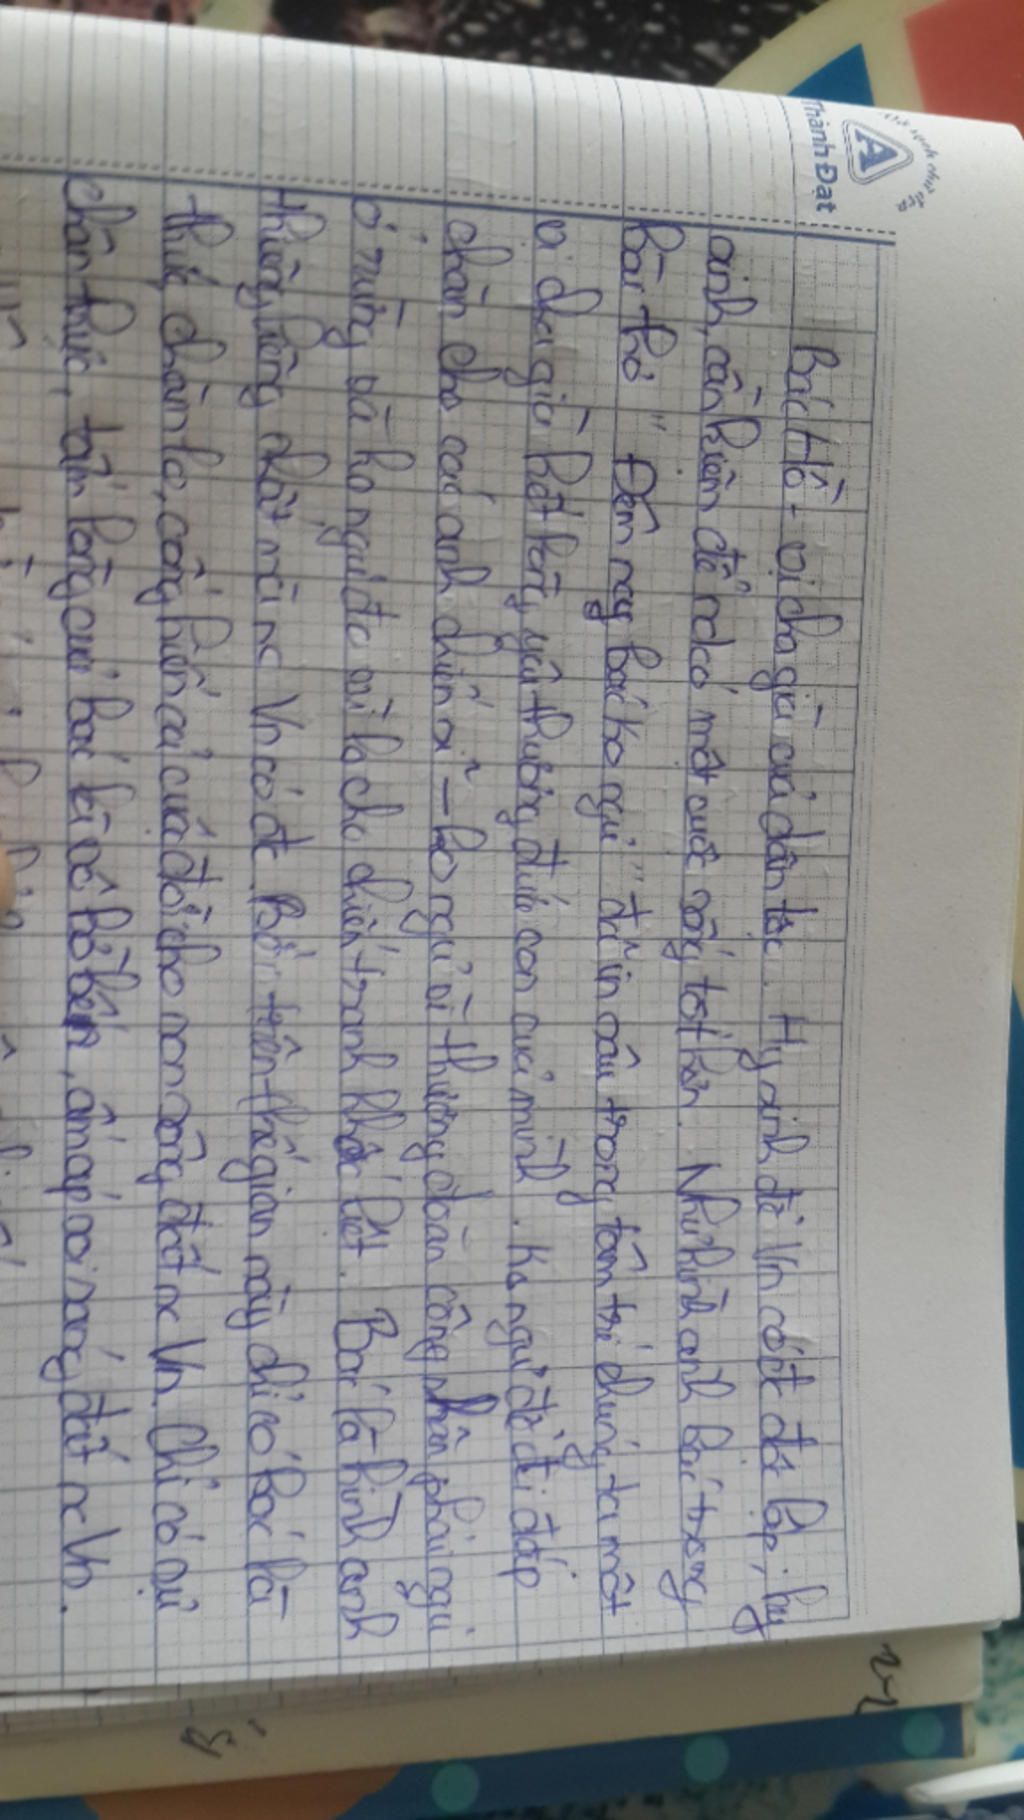 Thành Đạt
A
Bác Hồ - vị cha già của dân tộc. Hy sinh để Vn có đc độc lập, hy
sinh, cần kiệm để nd có một cuộc sống tốt hơn. Như hình ảnh bác trong
bài thơ " Đêm nay bác ko ngủ" đã in sâu trong tâm trí chúng ta một
vị cha già hết lòng yêu thương đứa con của mình. Ko ngủ để đi đắp
chăn cho các anh chiến sĩ - ko ngủ vì thương đoàn công nhân phải ngủ
ở rừng và ko ngủ đc vì lo cho chiến tranh khốc liệt. Bác là hình ảnh
thiêng liêng nhất mà nc Vn có đc. Bởi trên thế gian này chỉ có bác là
thức chăm lo, cống hiến cả cuộc đời cho non sông, đất nc Vn. Chỉ có sự
chân thực, tấm lòng của bác là vô bờ bến, ấm áp soi sáng đất nc Vn.